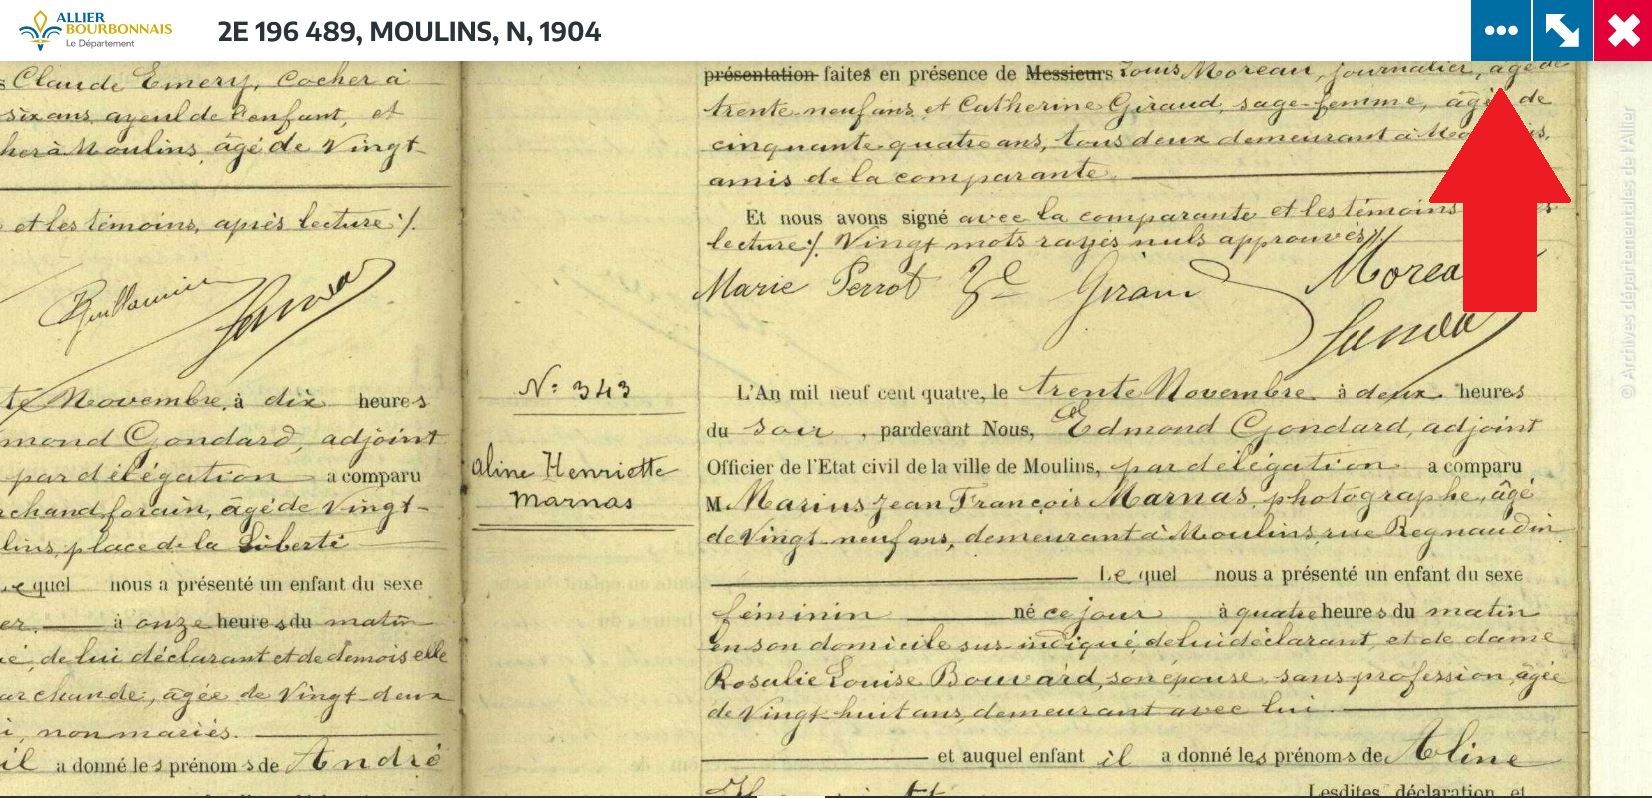 ALLIER
BOURBONNAIS
Le Département
2E 196 489, MOULINS, N, 1904
Claude Emery, cocher à
six ans ayeul de l'enfant, et
cher à Moulins, âgé de Vingt
et les témoins, après lecture ./.
Guillaumin
te Novembre, à dix heures
mond Gondard, adjoint
par délégation a comparu
rchand forain, âgé de Vingt-
lins, place de la Liberté
Lequel nous a présenté un enfant du sexe
er. à onze heures du matin
ué, de lui déclarant et de demoiselle
archande, âgée de Vingt-deux
i, non mariés.
il a donné les prénoms de André
N: 343
Aline Henriette
Marnas
présentation faites en présence de Messieurs Louis Moreau, journalier, âgé de
trente-neuf ans, et Catherine Giraud, sage-femme, âgée de
cinquante-quatre ans, tous deux demeurant à
amis de la comparante.
Et nous avons signé avec la comparante et les témoins
lecture ./. Vingt mots rayés nuls approuvés ./.
Marie Perrot Giraud Moreau
L'An mil neuf cent quatre, le trente Novembre à deux heures
du soir, pardevant Nous, Edmond Gondard, adjoint
Officier de l'Etat civil de la ville de Moulins, par délégation a comparu
M. Marius Jean François Marnas, photographe, âgé
de Vingt-neuf ans, demeurant à Moulins, rue Regnaudin
Lequel nous a présenté un enfant du sexe
féminin né ce jour à quatre heures du matin
en son domicile sus-indiqué, de lui déclarant, et de dame
Rosalie Louise Bouvard, son épouse sans profession, âgée
de Vingt-huit ans, demeurant avec lui.
et auquel enfant il a donné les prénoms de Aline
Lesdites déclaration et
© Archives départementales de l'Allier